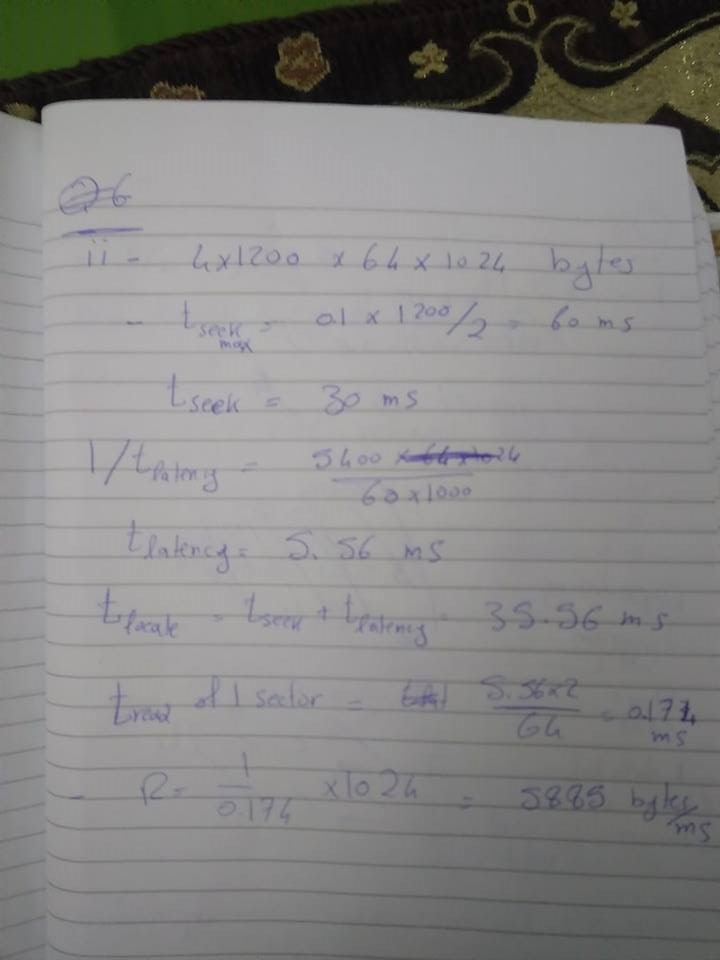 Q6
ii - 4x1200 x 64 x 1024 bytes
- tseek max = 0.1 x 1200/2 = 60 ms
tseek = 30 ms
1/tlatency = 5400 x 64 x 1024 / 60 x 1000
tlatency = 5.56 ms
tlocate = tseek + tlatency = 35.56 ms
tread of 1 sector = 5.56x2 / 64 = 0.174 ms
- R = 1 / 0.174 x 1024 = 5885 bytes/ms